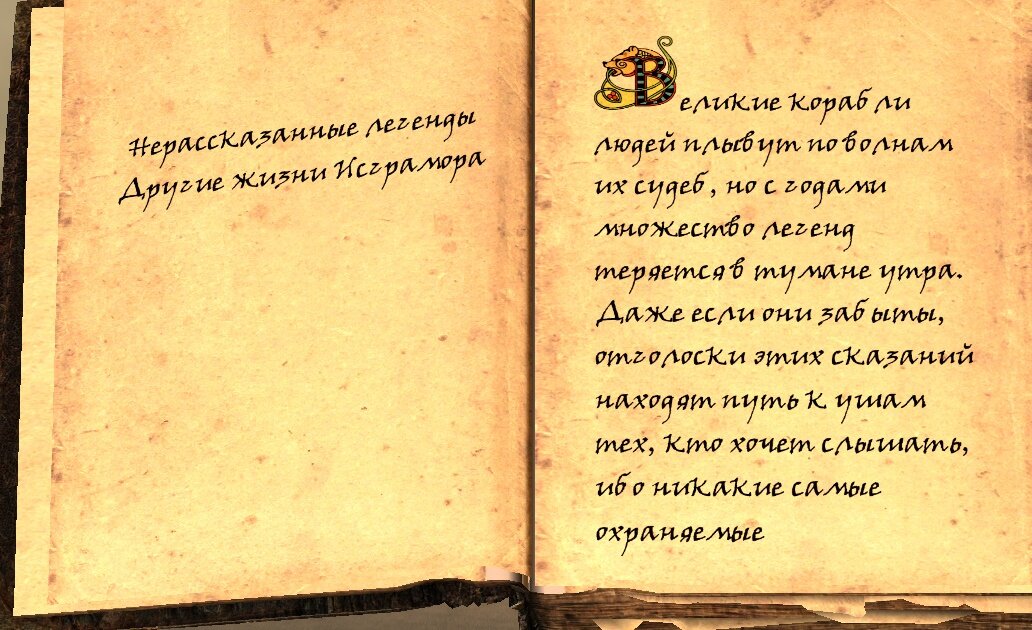 Нерассказанные легенды
Другие жизни Исграмора
Великие корабли
людей плывут по волнам
их судеб, но с годами
множество легенд
теряется в тумане утра.
Даже если они забыты,
отголоски этих сказаний
находят путь к ушам
тех, кто хочет слышать,
ибо никакие самые
охраняемые